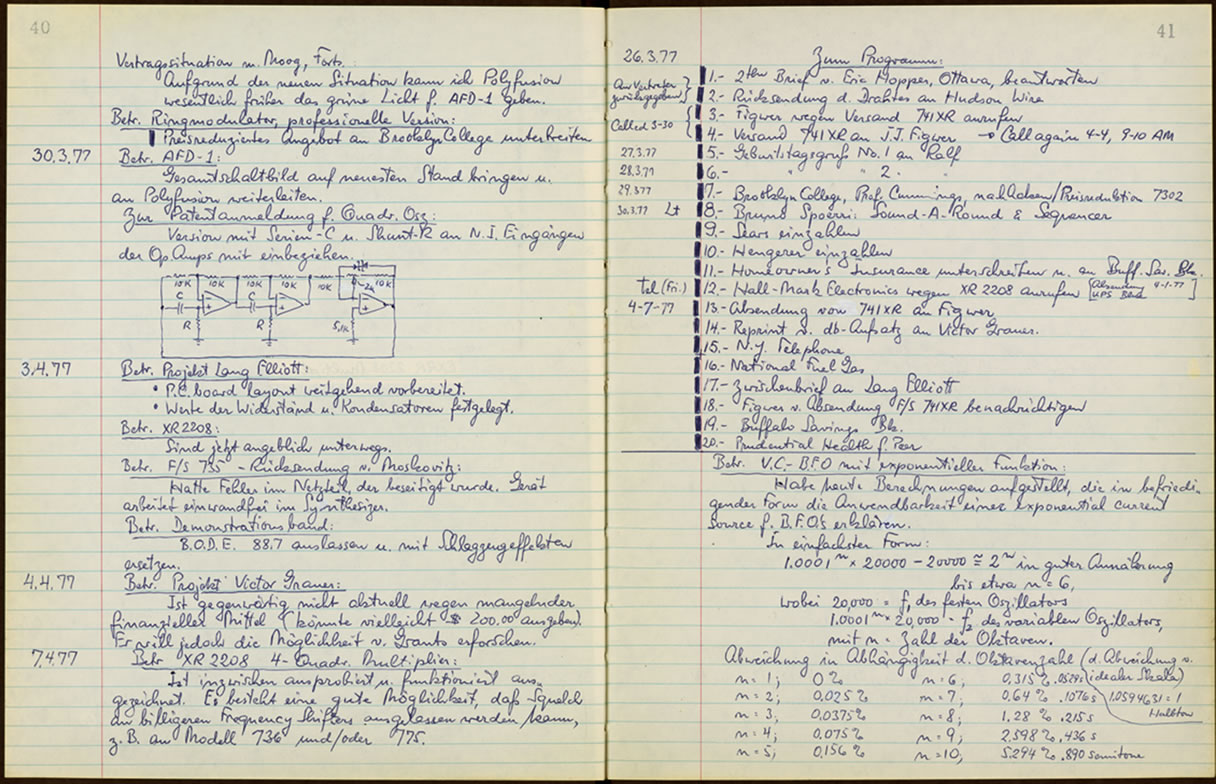 40
Vertragssituation m. Moog, Forts.:
Aufgrund der neuen Situation kann ich Polyfusion
wesentlich früher das grüne Licht f. AFD-1 geben.
Betr. Ringmodulator, professionelle Version:
Preisreduziertes Angebot an Brooklyn College unterbreiten
30.3.77 Betr. AFD-1:
Gesamtschaltbild auf neuesten Stand bringen u.
an Polyfusion weiterleiten.
Zur Patentanmeldung f. Quadr. Osz:
Version mit Serien-C u. Shunt-R an N.I. Eingängen
der Op. Amps mit einbeziehen.
10K 10K 10K 10K 10K
C C
R R 5,1K
3.4.77 Betr. Projekt Lang Elliott:
• P.C. board layout weitgehend vorbereitet.
• Werte der Widerstand u. Kondensatoren festgelegt.
Betr. XR2208:
Sind jetzt angeblich unterwegs.
Betr. F/S 735 - Rücksendung v. Moskovitz:
Hatte Fehler im Netzteil, der beseitigt wurde. Gerät
arbeitet einwandfrei im Synthesizer.
Betr. Demonstrationsband:
B.O.D.E. 88.7 auslassen u. mit Schlagzeugeffekten
ersetzen.
4.4.77 Betr. Projekt Victor Grauer:
Ist gegenwärtig nicht aktuell wegen mangelnder
finanzieller Mittel (könnte vielleicht $ 200.00 ausgeben).
Er will jedoch die Möglichkeit v. Grants erforschen.
7.4.77 Betr XR 2208 4-Quadr. Multiplier:
Ist inzwischen ausprobiert u. funktioniert aus-
gezeichnet. Es besteht eine gute Möglichkeit, daß Squelch
an billigeren Frequency Shifters ausgelassen werden kann,
z. B. an Modell 736 und/oder 775.
41
26.3.77 Zum Programm:
1.- 2ten Brief v. Eric Hopper, Ottawa, beantworten
An Vertreter
zurückgegeben
2.- Rücksendung d. Drahtes an Hudson Wire
3.- Figwer wegen Versand 741XR anrufen
Called 3-30 4.- Versand 741XR an J.J. Figwer → Call again 4-4, 9-10 AM
27.3.77 5.- Geburtstagsgruß No. 1 an Ralf
28.3.77 6.- " " 2. "
29.3.77 7.- Brooklyn College, Prof. Cummings, nachhaken/Preisreduktion 7302
30.3.77 Lt 8.- Bruno Spoerri: Sound-A-Round & Sequencer
9.- Sears einzahlen
10.- Hengerer einzahlen
11.- Homeowner's Insurance unterschreiben u. an Buff. Sav. Bk.
Tel (Fri.) 12.- Hall-Mark Electronics wegen XR 2208 anrufen [Absendung UPS Blue 4-1-77]
4-7-77 13.- Absendung von 741XR an Figwer
14.- Reprint v. db-Aufsatz an Victor Grauer.
15.- N.Y. Telephone
16.- National Fuel Gas
17.- Zwischenbrief an Lang Elliott
18.- Figwer v. Absendung F/S 741XR benachrichtigen
19.- Buffalo Savings Bk.
20.- Prudential Health f. Peer
Betr. V.C.- BFO mit exponentieller Funktion:
Habe heute Berechnungen aufgestellt, die in befriedi-
gender Form die Anwendbarkeit einer exponential current
source f. B.F.O.s erklären.
In einfachster Form:
1.0001ⁿ × 20000 - 20000 ≅ 2ⁿ in guter Annäherung
bis etwa n = 6,
wobei 20,000 = f₁ des festen Oszillators
1.0001ⁿ × 20,000 = f₂ des variablen Oszillators,
mit n = Zahl der Oktaven.
Abweichung in Abhängigkeit d. Oktavenzahl (d. Abweichung v.
idealer Skala)
n = 1; 0% n = 6; 0.315% .0529s
n = 2; 0.025% n = 7; 0.64% .1076s 1.0594631 = 1
Halbton
n = 3; 0.0375% n = 8; 1.28% .215s
n = 4; 0.075% n = 9; 2.598% .436s
n = 5; 0.156% n = 10; 5.294% .890 semitone